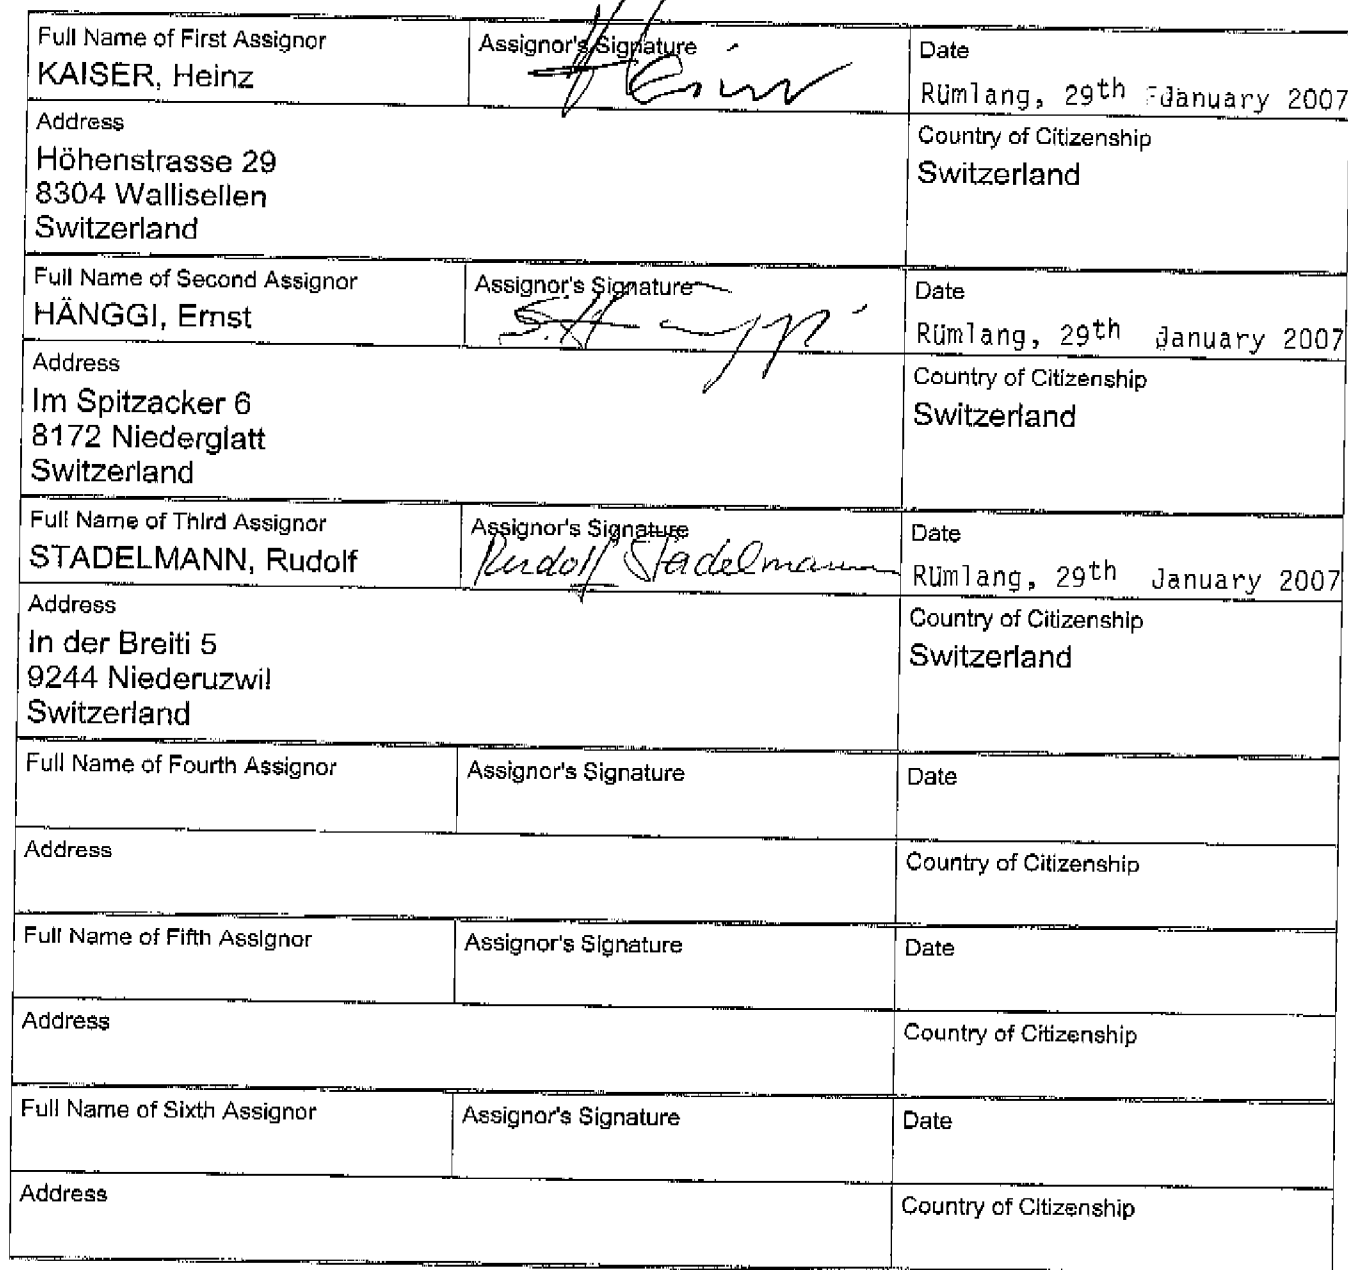 Full Name of First Assignor
KAISER, Heinz
Assignor's Signature
Date
Rümlang, 29th January 2007
Address
Höhenstrasse 29
8304 Wallisellen
Switzerland
Country of Citizenship
Switzerland
Full Name of Second Assignor
HÄNGGI, Ernst
Assignor's Signature
E. Hänggi
Date
Rümlang, 29th January 2007
Address
Im Spitzacker 6
8172 Niederglatt
Switzerland
Country of Citizenship
Switzerland
Full Name of Third Assignor
STADELMANN, Rudolf
Assignor's Signature
Rudolf Stadelmann
Date
Rümlang, 29th January 2007
Address
In der Breiti 5
9244 Niederuzwil
Switzerland
Country of Citizenship
Switzerland
Full Name of Fourth Assignor
Assignor's Signature
Date
Address
Country of Citizenship
Full Name of Fifth Assignor
Assignor's Signature
Date
Address
Country of Citizenship
Full Name of Sixth Assignor
Assignor's Signature
Date
Address
Country of Citizenship